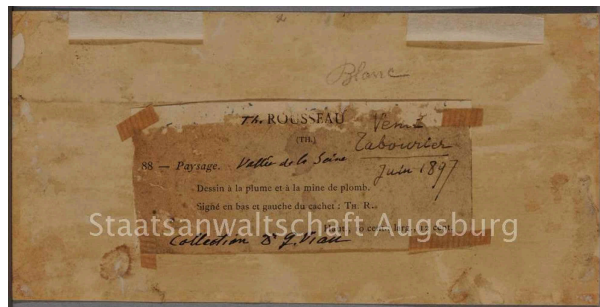 Blanc
Th. ROUSSEAU
(TH.)
Vente
Tabourier
Juin 1897
88 — Paysage. Vallée de la Seine
Dessin à la plume et à la mine de plomb.
Signé en bas et gauche du cachet : TH. R..
Staatsanwaltschaft Augsburg
Haut., cent.; larg., cent.
Collection D^r G. Viau